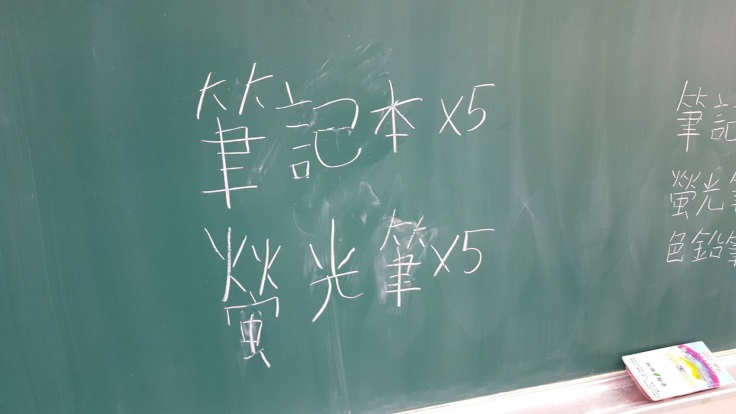 筆記本 x5
螢光筆 x5
筆記
螢光筆
色鉛筆